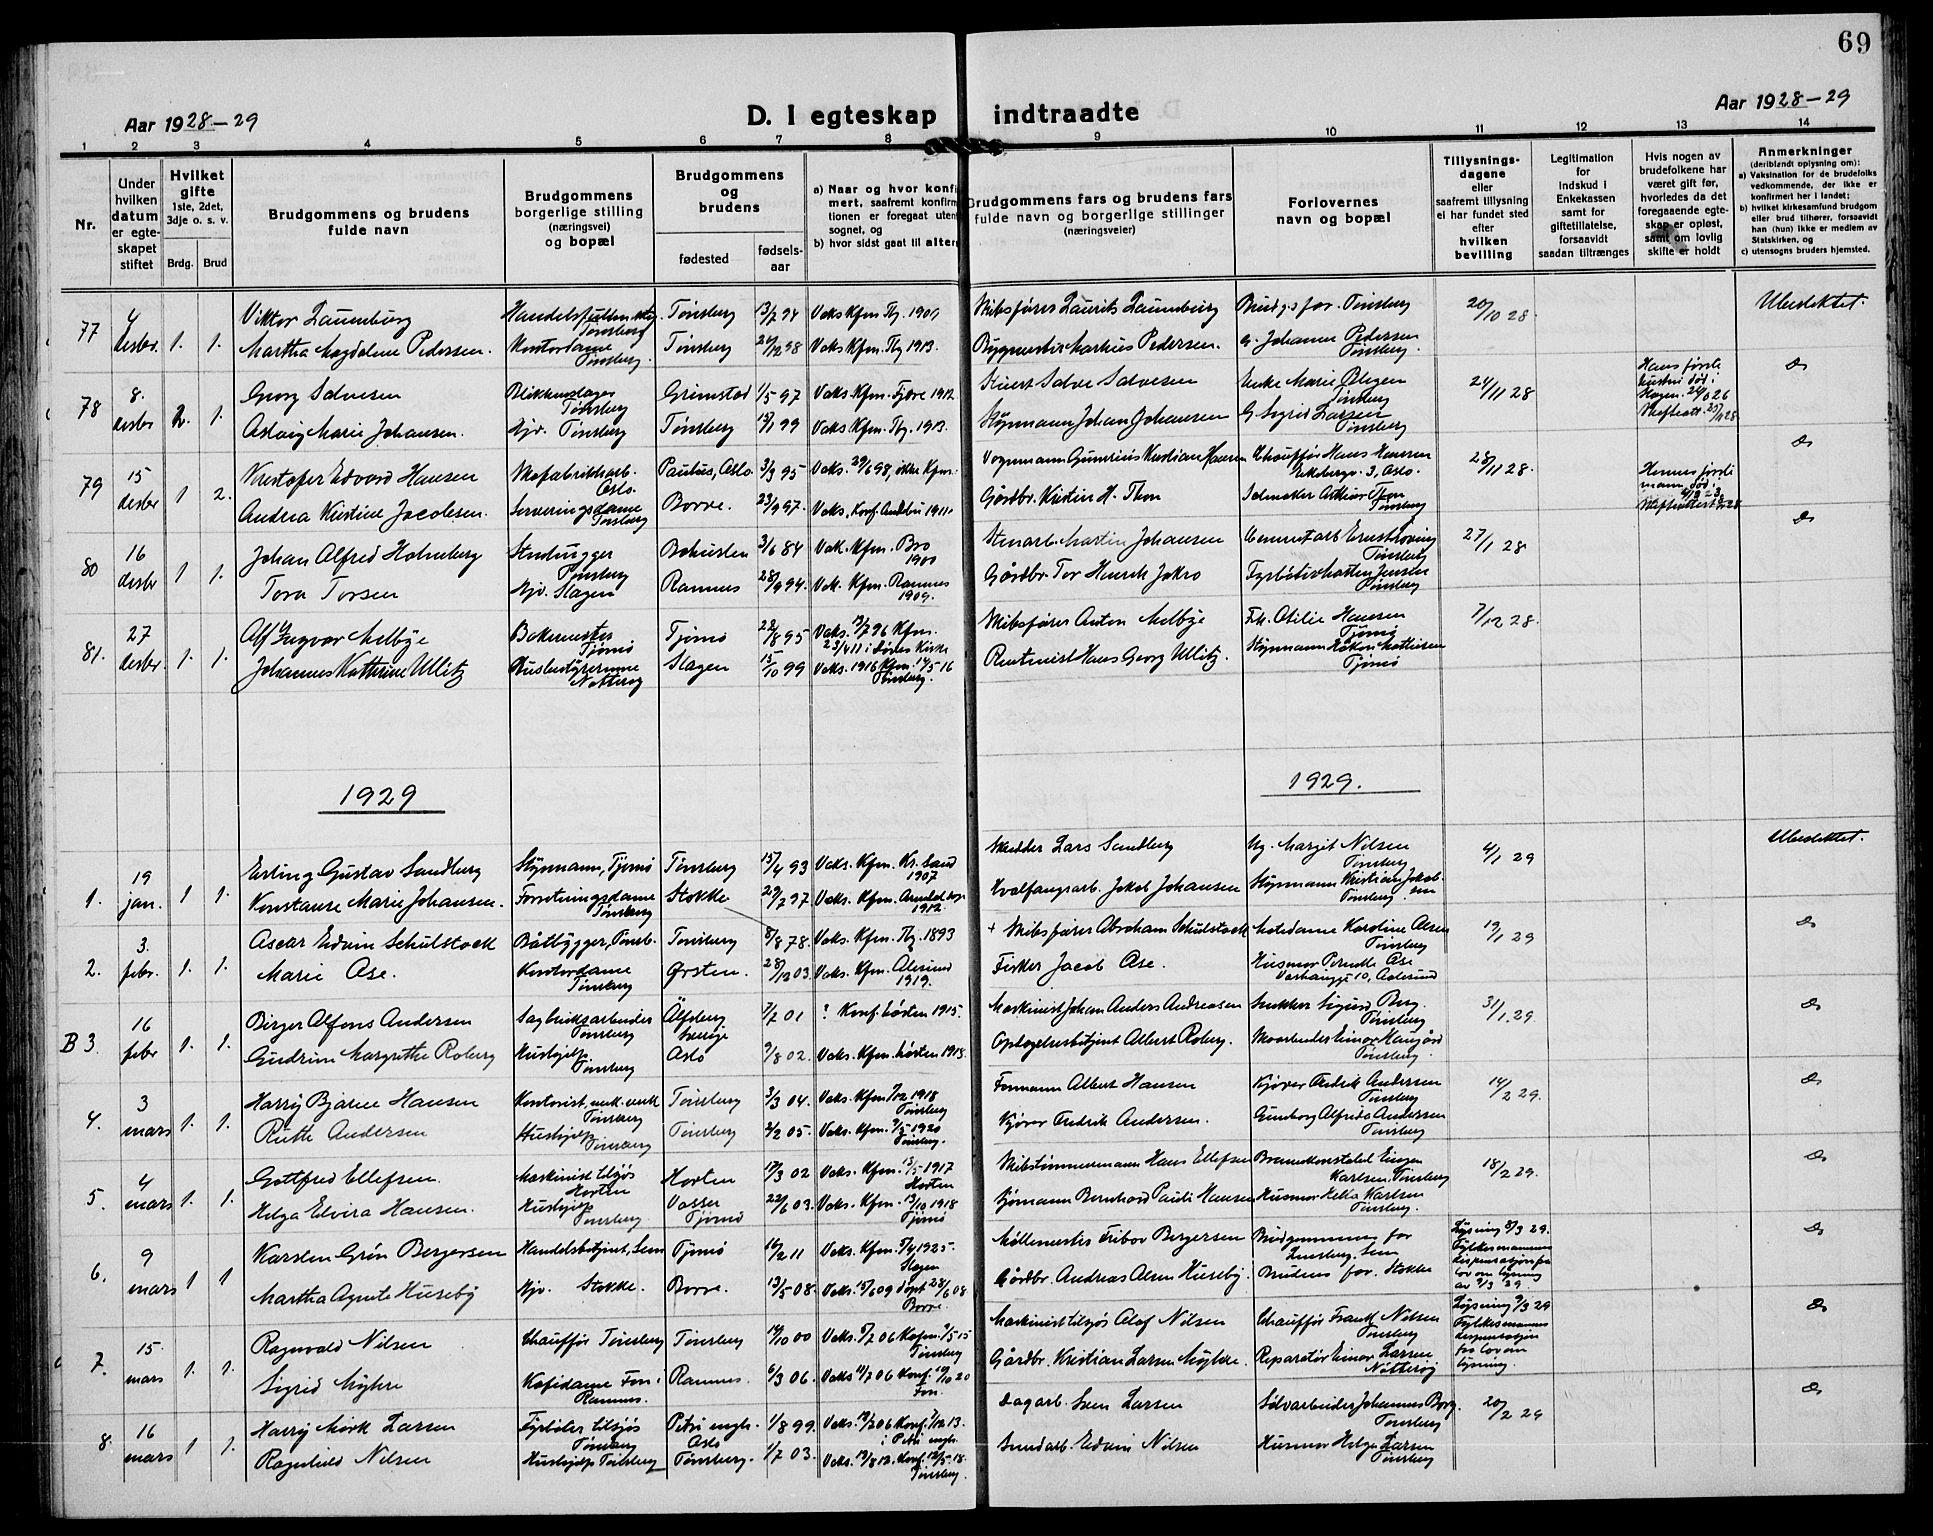 69
Aar 1928-29
D. I egteskap indtraadte
Aar 1928-29
1 2 3 4 5 6 7 8 9 10 11 12 13 14
Nr.
Under hvilken datum er egteskapet stiftet
Hvilket gifte 1ste, 2det, 3dje o. s. v.
Brdg. Brud
Brudgommens og brudens fulde navn
Brudgommens borgerlige stilling (næringsvei) og bopæl
Brudgommens og brudens
fødested fødsels-aar
a) Naar og hvor konfirmert, saafremt konfirmationen er foregaat utensognet, og
b) hvor sidst gaat til alters
Brudgommens fars og brudens fars fulde navn og borgerlige stillinger (næringsveier)
Forlovernes navn og bopæl
Tillysningsdagene eller saafremt tillysning ei har fundet sted efter hvilken bevilling
Legitimation for Indskud i Enkekassen samt for giftetillatelse, forsaavidt saadan tiltrænges
Hvis nogen av brudefolkene har været gift før, hvorledes da det foregaaende egteskap er opløst, samt om lovlig skifte er holdt
Anmerkninger (deriblandt oplysning om):
a) Vaksination for de brudefolks vedkommende, der ikke er konfirmert her i landet;
b) hvilket kirkesamfund brudgom eller brud tilhører, forsaavidt han (hun) ikke er medlem av Statskirken, og
c) utensogns bruders hjemsted.
77 4 desbr. 1. 1. Viktor Tønsberg 13/7 94 Vaks Kfm. Tbg. 1909 Brudgs far. Tønsberg 20/10 28. Ubeslektet.
Martha Magdalene Pedersen. Kontordame Tønsberg. Tønsberg 98 Vaks Kfm. Tbg 1913. Markus Pedersen. G. Johanne Pedersen Tønsberg.
78 8. desbr 2. 1. Georg Salvesen Blikkenslager Tønsberg Grimstad 1/5 97 Vaks. Kfm. Fjære 1912 Salve Salvesen Enke Marie Tønsberg 24/11 28 Hans første hustru død i Slagen. Do
Aslaug Marie Johansen. Hjv. Tønsberg Tønsberg 15/1 99 Vaks Kfm. Tbg. 1913. Styrmann Johan Johansen G. Sigrid Larsen Tønsberg
79 15 desbr 1 2. Kristofer Edvard Hansen Skofabrikkarb. Oslo. Paulus, Oslo 3/9 95 Vaks. 29/6 98, ikke Kfm. Vognmann Kristian Hansen Chauffør Hans Hansen Ekebergv. 3, Oslo. 28/11 28. Hennes første mann død Do
Andrea Kristine Jacobsen. Serveringsdame Tønsberg Borre. 23/9 97. Vaks, Konf. Andebu 1911. Gårdbr. Kristin H. Thon Salmaker Arthur Thon Tønsberg
80 16 desbr 1 1. Johan Alfred Holmberg Stenhugger Tønsberg Bohuslen 3/6 84 Vak. Kfm. Bro 1900 Stenarb. Martin Johansen Cementarb Ernst Tønsberg 27/1 28 Do
Tora Torsen Hjv. Slagen Ramnes 28/9 94. Vak. Kfm. Ramnes 1909. Gårdbr. Tor Henrik Jakro Fyrbøter Karsten Jensen Tønsberg
81. 27 desbr. 1. 1. Alf Ingvar Melbye Bakermester Tjømø Tjømø 22/8 95 Vaks. 19/7 96 Kfm. 23/4 11 i Kirke Skibsfører Anton Melbye Frk. Otilie Hansen Tjømø 7/12 28.
Johannes Kathrine Ullitz Husbestyrerinne Nøtterøy Slagen 15/10 99 Vaks. 1916 Kfm. 14/5 16 Tønsberg. Rentenist Hans Georg Ullitz. Styrmann Håkon Mathisen Tjømø
1929 1929.
1. 19 jan. 1 1. Erling Gustav Sandberg Styrmann, Tjømø Tønsberg 15/4 93 Vaks. Kfm. Kr. Sand 1907 Skredder Lars Sandberg Ug. Margit Nilsen Tønsberg 4/1 29 Ubeslektet.
Konstanse Marie Johansen. Forretningsdame Tønsberg Stokke 29/7 97 Vaks. Kfm. 1912. Hvalfangsarb. Jakob Johansen Styrmann Kristian Jakobsen Tønsberg.
2. 3. febr. 1. 1. Oscar Edvin Schulstock Båtbygger, Tønsb. Tønsberg 8/8 78. Vaks. Kfm. Tbg. 1893 + Skibsfører Abraham Schulstock Motedame Karoline Olsen Tønsberg 19/1 29 Do
Marie Ose. Kontordame Tønsberg Ørsten. 28/12 03. Vaks. Kfm. Ålesund 1919. Fisker Jacob Ose. Husmor Pernille Ose 10, Aalesund
B 3. 16 febr 1. 1. Birger Alfons Andersen Sagbruksarbeider Tønsberg Älfsborg Sverige 7/7 01 ? Konf. høsten 1915. Maskinist Johan Anders Andreasen Snekker Sigurd Berg. Tønsberg 31/1 29. Do
Gudrun Margrethe Roberg Hushjelp. Tønsberg Oslo 9/8 02. Vaks. Kfm. høsten 1918. Oplagsbetjent Albert Roberg. Skoarbeider Einar Haugård Tønsberg.
4. 3 mars 1. 1. Harry Bjarne Hansen Kontorist, Tønsberg Tønsberg 3/3 04. Vaks. Kfm 1/12 1918 Tønsberg Formann Albert Hansen Kjører Fredrik Andersen Tønsberg 14/2 29. Do
Ruth Andersen Hushjelp Tønsberg Tønsberg 3/2 05. Vaks. Kfm. 9/5 1920 Tønsberg. Kjører Fredrik Andersen. Gunborg Alfrida Andersen Tønsberg
5. 4 mars 1. 1. Gottfred Ellefsen. Maskinist tilsjøs Horten Horten 17/3 02 Vaks. Kfm. 13/5 1917 Horten Skibstimmermann Hans Ellefsen Brannkonstabel Eugen Karlsen, Tønsberg 18/2 29. Do
Helga Elvira Hansen. Hushjelp Tønsberg. Vasser Tjømø 22/6 03. Vaks. Kfm. 13/10 1918 Tjømø Sjømann Bernhard Pauli Hansen Husmor Helga Karlsen Tønsberg.
6. 9 mars 1 1 Karsten Grøn Bergersen Handelsbetjent, Sem Tjømø 16/2 11 Vaks. Kfm. 5/4 1925. Slagen Møllemester Tribor Bergersen Brudgommens far Tønsberg, Sem Lysning 8/3 29. Fylkesmannens dispensasjon fra lov om lysning av 9/3 29 Do
Martha Agnete Huseby Hjv. Stokke. Borre. 13/5 08. Vaks. 15/6 09 døpt 28/6 08 Borre. Gårdbr. Andreas Olsen Huseby. Brudens far. Stokke
7. 15 mars 1. 1. Ragnvald Nilsen Chauffør Tønsberg Tønsberg 14/10 00 Vaks. 5/7 06 Konf. 9/5 15 Tønsberg Maskinist tilsjøs Olaf Nilsen Chauffør Frank Nilsen Tønsberg Lysning 9/3 29 Fylkesmannens dispensasjon fra lov om lysning. Do
Sigrid Myhre Kafédame Fon i Ramnes. Ramnes. 6/3 06. Vaks 11/7 06 Konf. 10/10 20 Fon. Gårdbr. Kristian Larsen Myhre. Reparatør Einar Larsen Nøtterøy
8. 16 mars 1 1. Harry Mørk Larsen Fyrbøter tilsjøs Tønsberg Petri mgh. Oslo 1/8 99. Vaks. 19/7 06 Konf. 7/12 13. i Petri mgh. Dagarb. Sven Larsen Sølvarbeider Johannes Borg. Tønsberg 20/2 29 Do
Ragnhild Nilsen Hushjelp Tønsberg Tønsberg. 1/7 03. Vaks. 19/8 12. Konf. 12/5 18. Tønsberg. Grundarb. Edvin Nilsen Husmor Helga Larsen Tønsberg